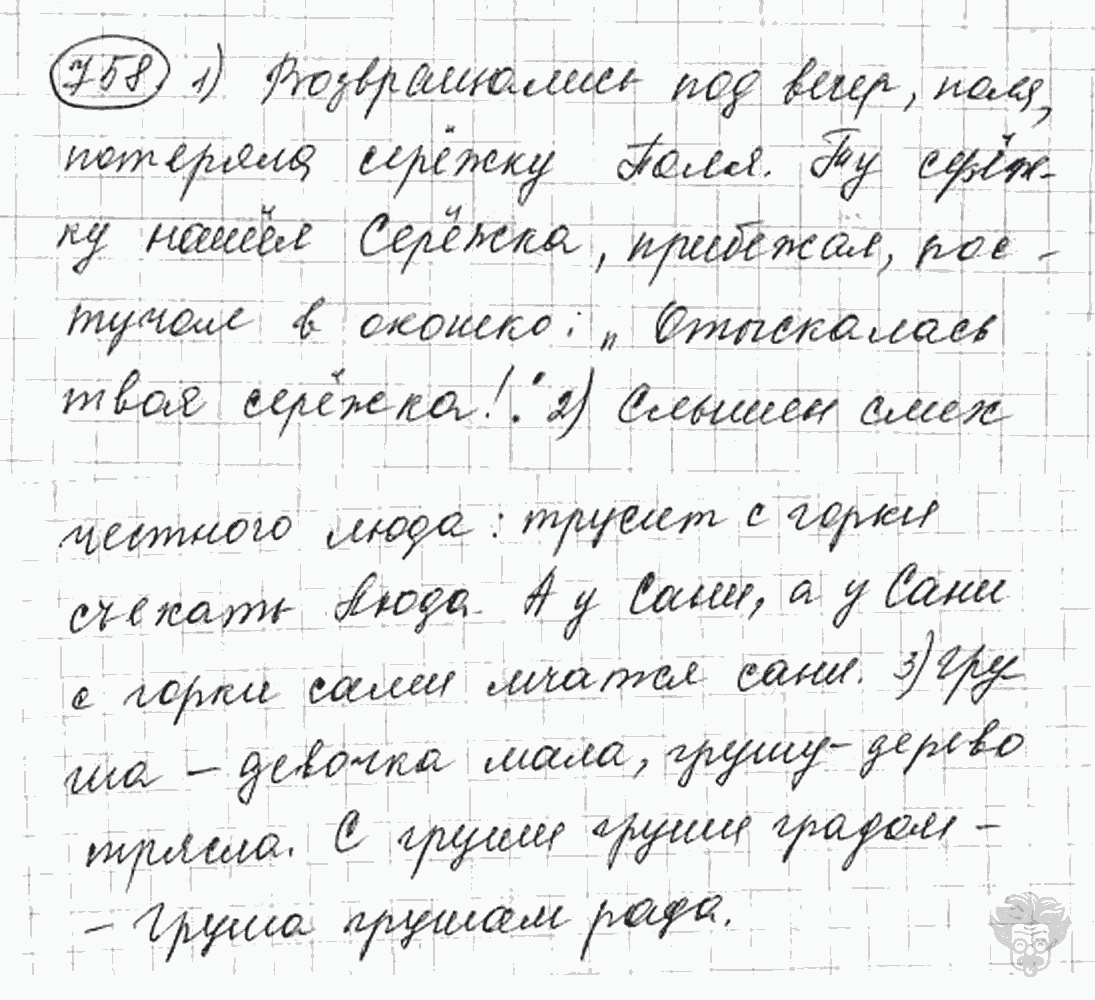 758 1) Возвращались под вечер, поля,
потеряла серёжку Поля. Ту серёж-
ку нашёл Серёжка, прибежал, пос-
тучал в окошко: „Отыскалась
твоя серёжка! 2) Слышен смех
честного люда: трусит с горки
съехать Люда. А у Сани, а у Сани
с горки сами мчатся сани. 3) Гру
ша – девочка мала, грушу- дерево
трясла. С груши груши градом –
– Груша грушам рада.